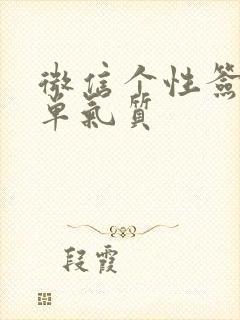 微信个性签
单气质
段霞